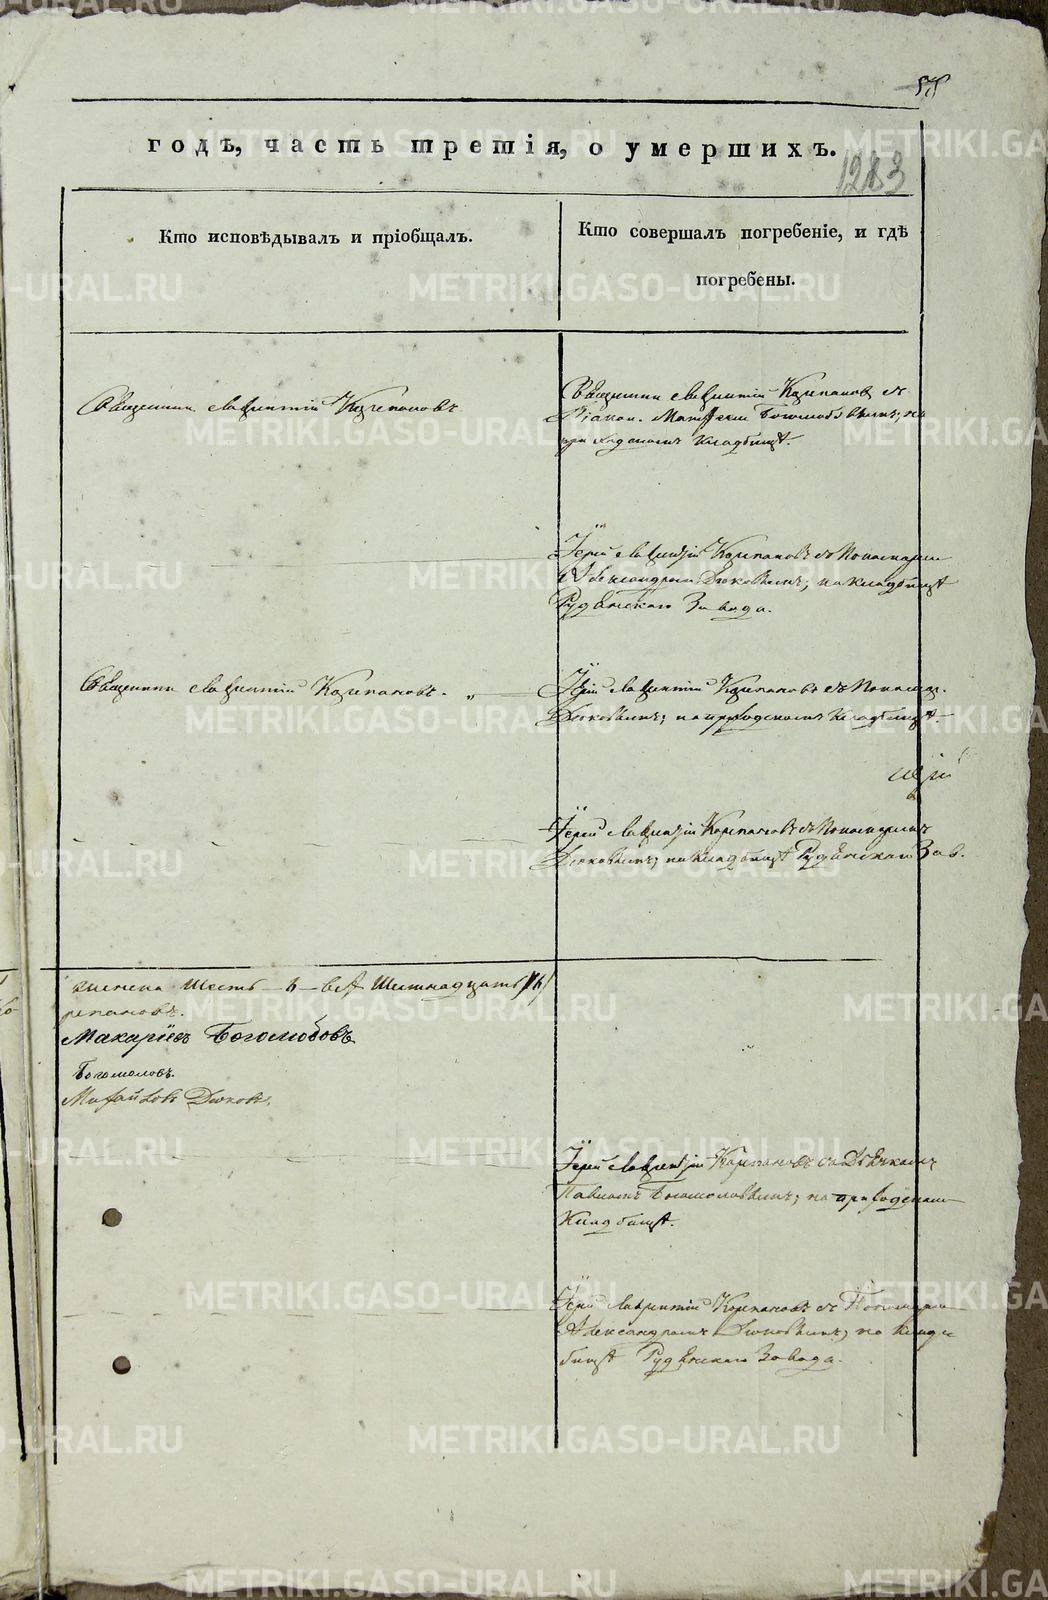 годъ, часть третія, о умершихъ.
1283
Кто исповѣдывалъ и пріобщалъ.
Кто совершалъ погребеніе, и гдѣ
погребены.
Священник Лаврентій Карпановъ
Священник Лаврентій Карпанов съ
Діакон.
приходскомъ кладбищѣ.
Іерей Лаврентій Карпановъ съ Пономарем
Александром Дюковымъ; на кладбищѣ
Рудянскаго Завода.
Священник Лаврентій Карпановъ. „
Іерей Лаврентій Карпановъ съ Пономар.
Дюковымъ; на приходскомъ кладбищѣ.
Іерей Лаврентій Карпановъ съ Пономаремъ
Дюковымъ; на кладбищѣ Рудянскаго Зав.
женска шесть 6 всѣ шестнадцать /16/
репановъ.
Макаріевъ Боголюбовъ
Богомоловъ.
Михайловъ Дюковъ.
Іерей Лаврентій Карпановъ съ Дьячкомъ
Павломъ Богомоловымъ; на приходском
Кладбищѣ.
Іерей Лаврентій Карпановъ съ Пономарем
Александромъ Дюковымъ; на клад-
бищѣ Рудянскаго Завода.
METRIKI.GASO-URAL.RU